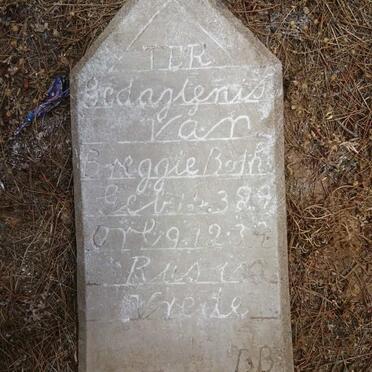 TER
Gedagtenis
Van
Breggie Both
Geb
Orl 9.12.3
Rus in
Vrede